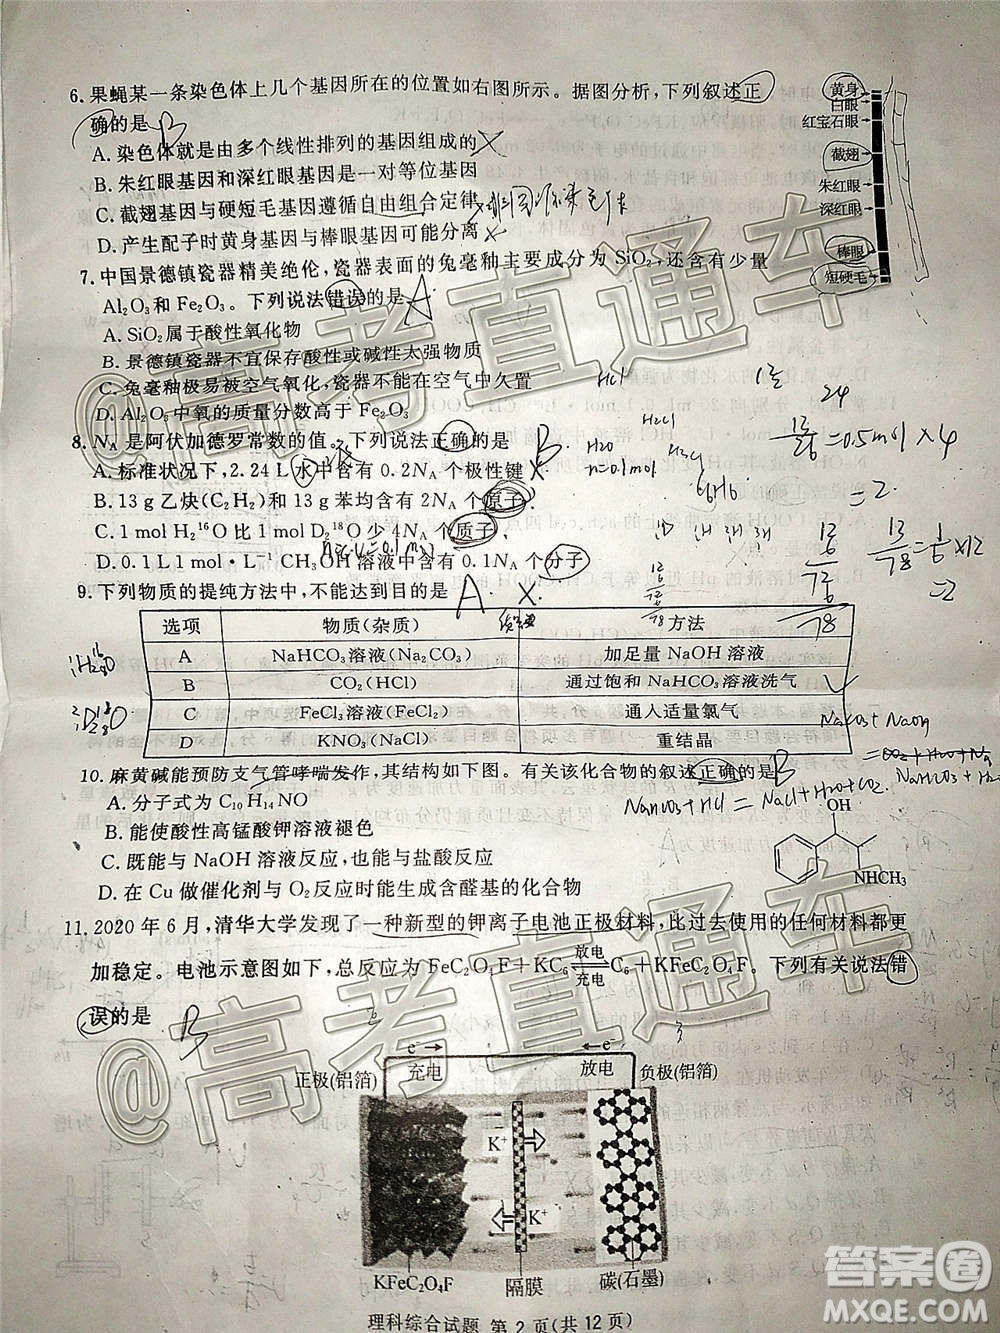 6. 果蝇某一条染色体上几个基因所在的位置如右图所示。据图分析，下列叙述正
确的是 B
A. 染色体就是由多个线性排列的基因组成的 ×
B. 朱红眼基因和深红眼基因是一对等位基因
C. 截翅基因与硬短毛基因遵循自由组合定律
D. 产生配子时黄身基因与棒眼基因可能分离
黄身
白眼
红宝石眼
截翅
朱红眼
深红眼
棒眼
短硬毛
7. 中国景德镇瓷器精美绝伦，瓷器表面的兔毫釉主要成分为 SiO₂，还含有少量
Al₂O₃和 Fe₂O₃。下列说法错误的是 A
A. SiO₂属于酸性氧化物
B. 景德镇瓷器不宜保存酸性或碱性太强物质
C. 兔毫釉极易被空气氧化，瓷器不能在空气中久置
D. Al₂O₃中氧的质量分数高于 Fe₂O₃
HCl
24
8. N_A 是阿伏加德罗常数的值。下列说法正确的是 B
A. 标准状况下，2.24 L 水中含有 0.2N_A 个极性键 ×
B. 13 g 乙炔(C₂H₂)和 13 g 苯均含有 2N_A 个原子
C. 1 mol H₂¹⁶O 比 1 mol D₂¹⁸O 少 4N_A 个质子
D. 0.1 L 1 mol·L⁻¹ CH₃OH 溶液中含有 0.1N_A 个分子
H₂O
n=0.1mol
13/26=0.5mol×4
=2
13/78=1/6×12
=2
9. 下列物质的提纯方法中，不能达到目的是 A
选项 物质(杂质) 方法
A NaHCO₃溶液(Na₂CO₃) 加足量 NaOH 溶液
B CO₂(HCl) 通过饱和 NaHCO₃溶液洗气
C FeCl₃溶液(FeCl₂) 通入适量氯气
D KNO₃(NaCl) 重结晶
10. 麻黄碱能预防支气管哮喘发作，其结构如下图。有关该化合物的叙述正确的是 B
A. 分子式为 C₁₀H₁₄NO
B. 能使酸性高锰酸钾溶液褪色
C. 既能与 NaOH 溶液反应，也能与盐酸反应
D. 在 Cu 做催化剂与 O₂反应时能生成含醛基的化合物
NaHCO₃+HCl=NaCl+H₂O+CO₂
OH
NHCH₃
11. 2020 年 6 月，清华大学发现了一种新型的钾离子电池正极材料，比过去使用的任何材料都更
加稳定。电池示意图如下，总反应为 FeC₂O₄F＋KC₆ ⇌(放电/充电) C₆＋KFeC₂O₄F。下列有关说法错
误的是 B
e⁻ 充电
放电 e⁻
正极(铝箔)
负极(铝箔)
K⁺
K⁺
KFeC₂O₄F
隔膜
碳(石墨)
理科综合试题 第 2 页(共 12 页)
@高考直通车
@高考直通车
答案圈
MXQE.COM